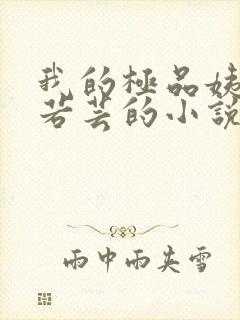 我的極品姨
若芸的小說
雨中雨夾雪